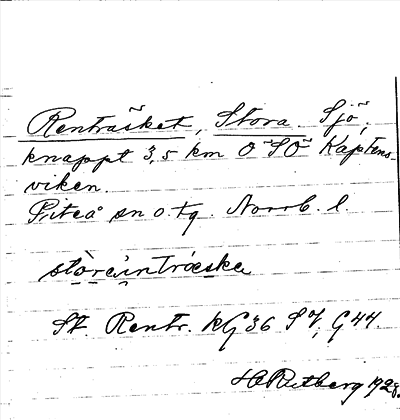 Renträsket, Stora. Sjö,
knappt 3,5 km O SO Kaptens-
viken.
Piteå sn o. tg. Norrb. l.
St. Rentr. kG36 SV, G44.
H Retberg 1928.